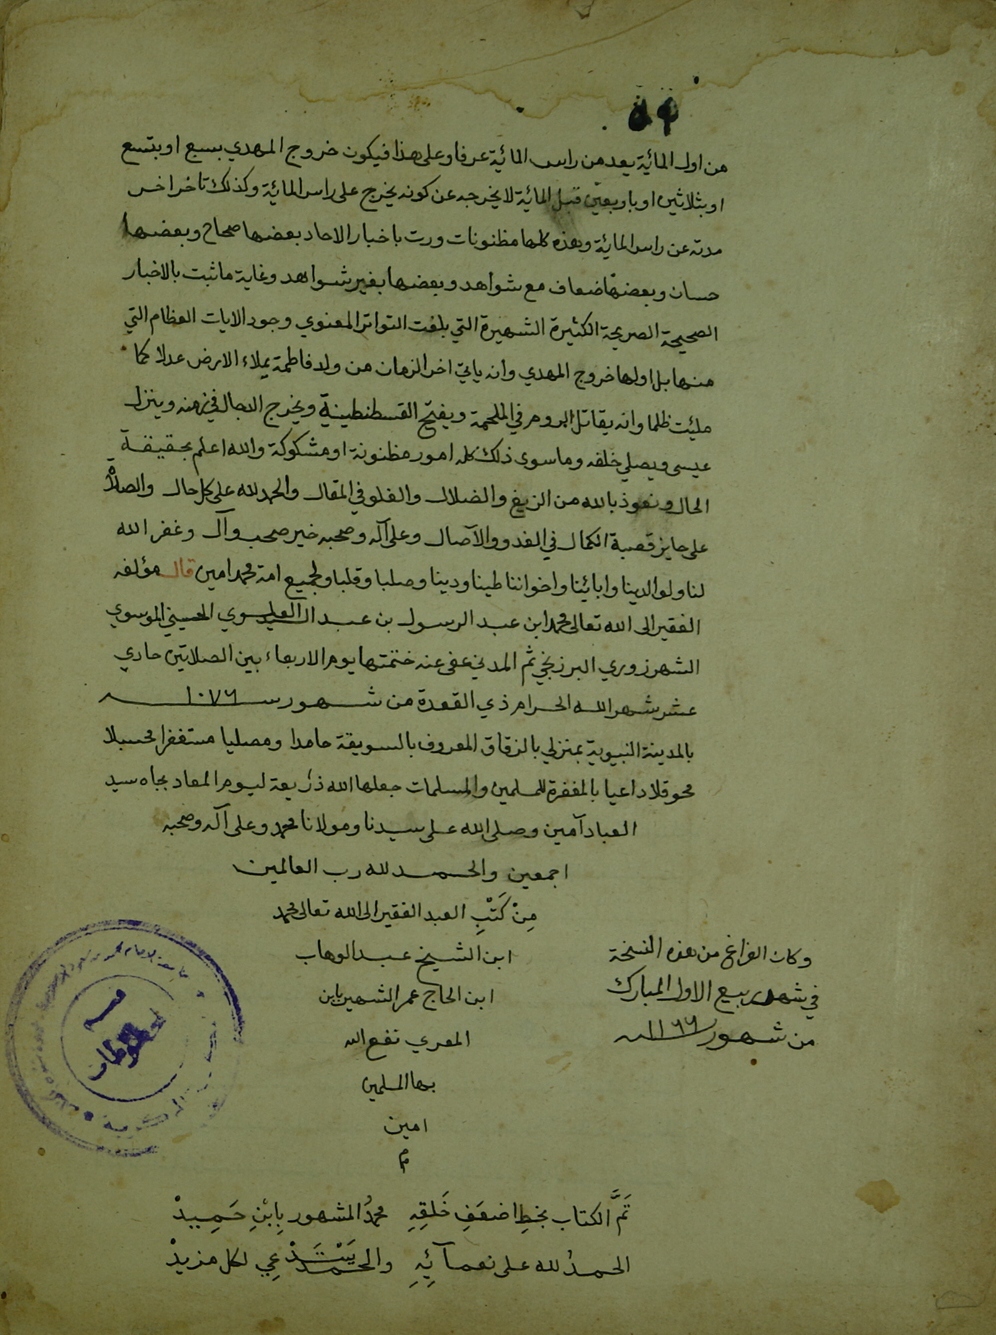 ٥٩
من اول المائية يعد من راس المائية عرفا وعلى هذا فيكون خروج المهدي بسبع او بتسع
او بثلاثين او باربعين قبل المائية لا يخرجه عن كونه يخرج على راس المائية وكذلك تاخر اخر
مدته عن راس المائية وهذه كلها مظنونات ورت باخبار الاحاد بعضها صحاح وبعضها
حسان وبعضها ضعاف مع شواهد وبعضها بغير شواهد وغاية ما ثبت بالاخبار
الصحيحة الصريحة الكثيرة الشهيرة التي بلغت التواتر المعنوي وجود الايات العظام التي
منها بل اولها خروج المهدي وانه ياتي اخر الزمان من ولد فاطمة يملاء الارض عدلا كما
ملئت ظلما وانه يقاتل الروم في الملحمة ويفتح القسطنطينية ويخرج الدجال في زمنه وينزل
عيسى ويصلي خلفه وما سوى ذلك كله امور مظنونة او مشكوكة والله اعلم بحقيقة
الحال ونعوذ بالله من الزيغ والضلال والغلو في المقال والحمد لله على كل حال والصلاة
على حايز قصبة الكمال في الغدو والآصال وعلى آله وصحبه خير صحب وآل وغفر الله
لنا ولوالدينا وابائينا واخواننا طينا ودينا وصلبا وقلبا ولجميع امة محمد امين قال مؤلفه
الفقير الى الله تعالى محمد ابن عبد الرسول بن عبد العلوي الحسيني الموسوي
الشهرزوري البرزنجي ثم المدني عفي عنه ختمتها يوم الاربعاء بين الصلاتين حادي
عشر شهر الله الحرام ذي القعدة من شهور سنة ١٠٧٦
بالمدينة النبوية بمنزلي بالزقاق المعروف بالسويقة حامدا ومصليا مستغفرا محسبلا
محوقلا داعيا بالمغفرة للمسلمين والمسلمات جعلها الله ذريعة ليوم المعاد بجاه سيد
العباد آمين وصلى الله على سيدنا ومولانا محمد وعلى آله وصحبه
اجمعين والحمد لله رب العالمين
مِنْ كَتْبِ العبد الفقير الى الله تعالى محمد
ابن الشيخ عبد الوهاب
ابن الحاج عمر الشهير بابن
المعري نفع الله
بها المسلمين
امين
م
وكان الفراغ من هذه النسخة
في شهر ربيع الاول المبارك
من شهور ١١٦٦ سنه
تَمَّ الكتاب بخط اضعَفِ خَلقِهِ محمدُ المشهور بِابْنِ حَمِيدْ
الحمدُ لله على نعمآئِهِ والحمدُ يَسْتَدْعِي لكل مزيدْ
قسم
المخطوطات